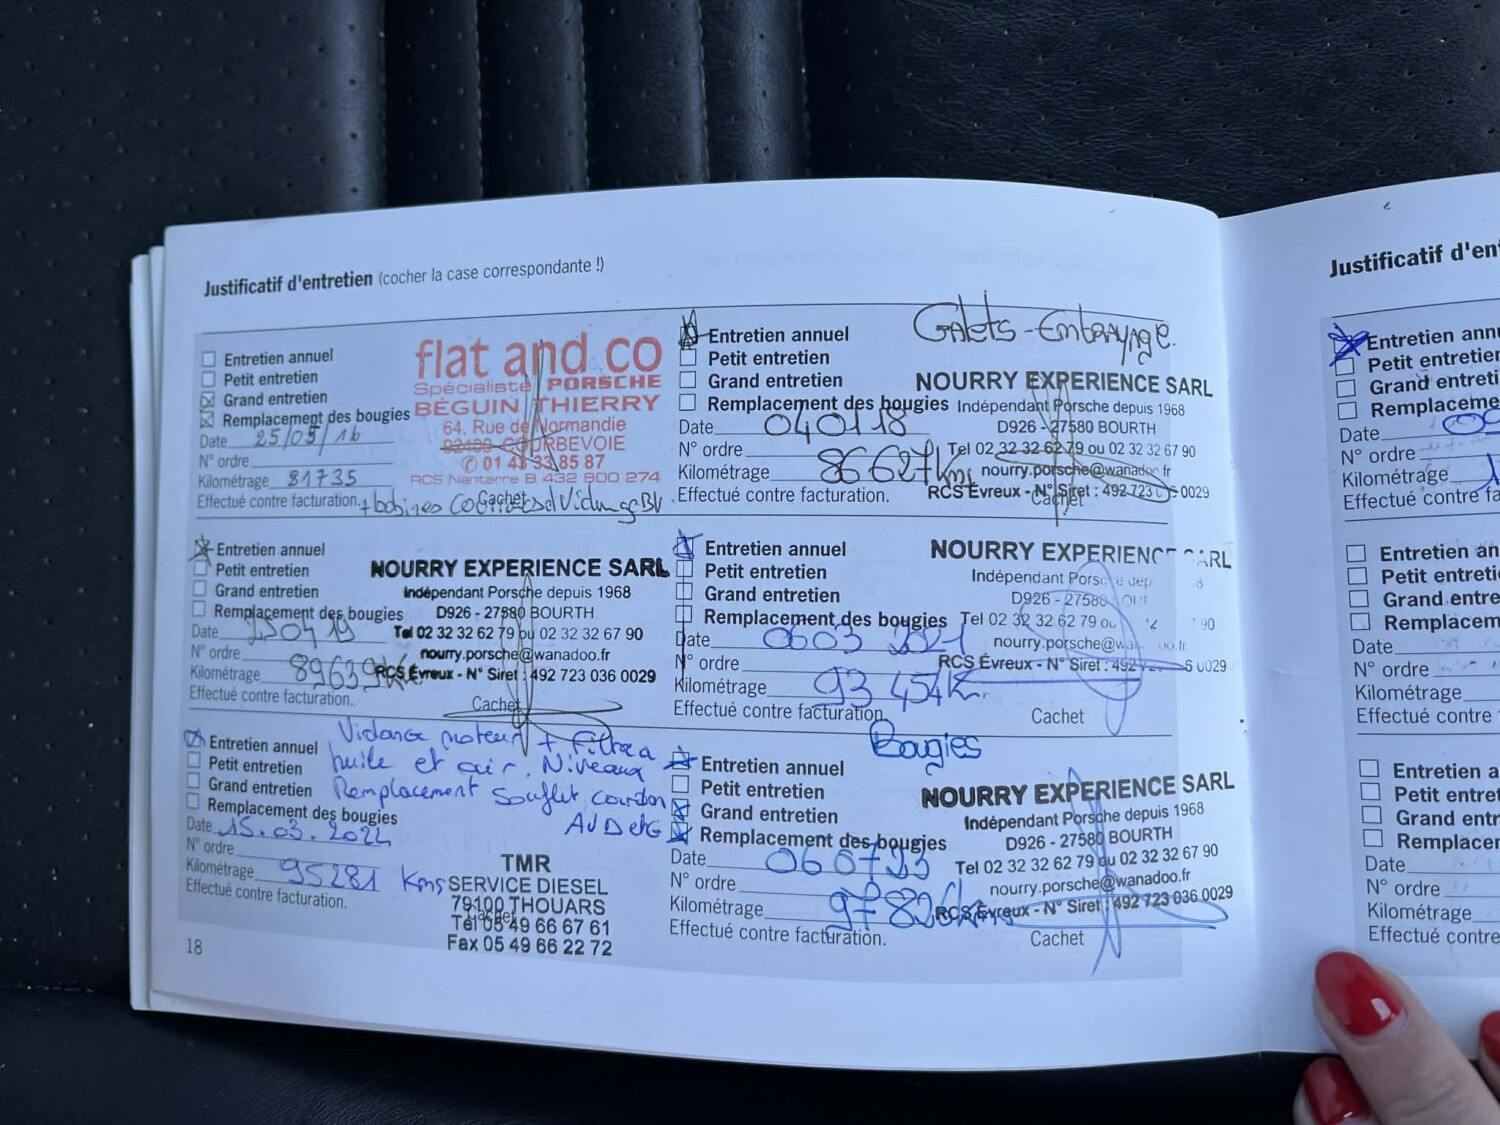 Justificatif d'entretien (cocher la case correspondante !)
Entretien annuel
Petit entretien
Grand entretien
Remplacement des bougies
Date 25/05/16
N° ordre
Kilométrage 81735
Effectué contre facturation.
flat and co
Spécialiste PORSCHE
BÉGUIN THIERRY
64, Rue de Normandie
92400 COURBEVOIE
01 43 33 85 87
RCS Nanterre B 432 800 274
Cachet
Galets - Embrayage.
Entretien annuel
Petit entretien
Grand entretien
Remplacement des bougies
Date 040118
N° ordre
Kilométrage 86627kms
Effectué contre facturation.
NOURRY EXPERIENCE SARL
Indépendant Porsche depuis 1968
D926 - 27580 BOURTH
Tel 02 32 32 62 79 ou 02 32 32 67 90
nourry.porsche@wanadoo.fr
RCS Évreux - N° Siret : 492 723 036 0029
Cachet
Entretien annuel
Petit entretien
Grand entretien
Remplacement des bougies
Date 0419
N° ordre
Kilométrage 89639
Effectué contre facturation.
NOURRY EXPERIENCE SARL
Indépendant Porsche depuis 1968
D926 - 27580 BOURTH
Tel 02 32 32 62 79 ou 02 32 32 67 90
nourry.porsche@wanadoo.fr
RCS Évreux - N° Siret : 492 723 036 0029
Cachet
Entretien annuel
Petit entretien
Grand entretien
Remplacement des bougies
Date 0603 2021
N° ordre
Kilométrage 93454k.
Effectué contre facturation.
NOURRY EXPERIENCE SARL
Indépendant
D926 - 27580
Tel 02 32 32 62 79 ou
RCS Évreux - N° Siret : 492
Cachet
Vidange moteur + Filtre a
huile et air. Niveaux
Remplacement soufflet cardan
AVD et G
Entretien annuel
Petit entretien
Grand entretien
Remplacement des bougies
Date 15.03.2022
N° ordre
Kilométrage 95281 Kms
Effectué contre facturation.
TMR
SERVICE DIESEL
79100 THOUARS
Tél 05 49 66 67 61
Fax 05 49 66 22 72
Cachet
Bougies
Entretien annuel
Petit entretien
Grand entretien
Remplacement des bougies
Date 060723
N° ordre
Kilométrage 97826kms
Effectué contre facturation.
NOURRY EXPERIENCE SARL
Indépendant Porsche depuis 1968
D926 - 27580 BOURTH
Tel 02 32 32 62 79 ou 02 32 32 67 90
nourry.porsche@wanadoo.fr
RCS Évreux - N° Siret : 492 723 036 0029
Cachet
18
Justificatif d'en
Entretien annu
Petit entretien
Grand entreti
Remplaceme
Date
N° ordre
Kilométrage
Effectué contre fa
Entretien an
Petit entreti
Grand entre
Remplacem
Date
N° ordre
Kilométrage
Effectué contre
Entretien a
Petit entret
Grand entr
Remplacer
Date
N° ordre
Kilométrage
Effectué contre